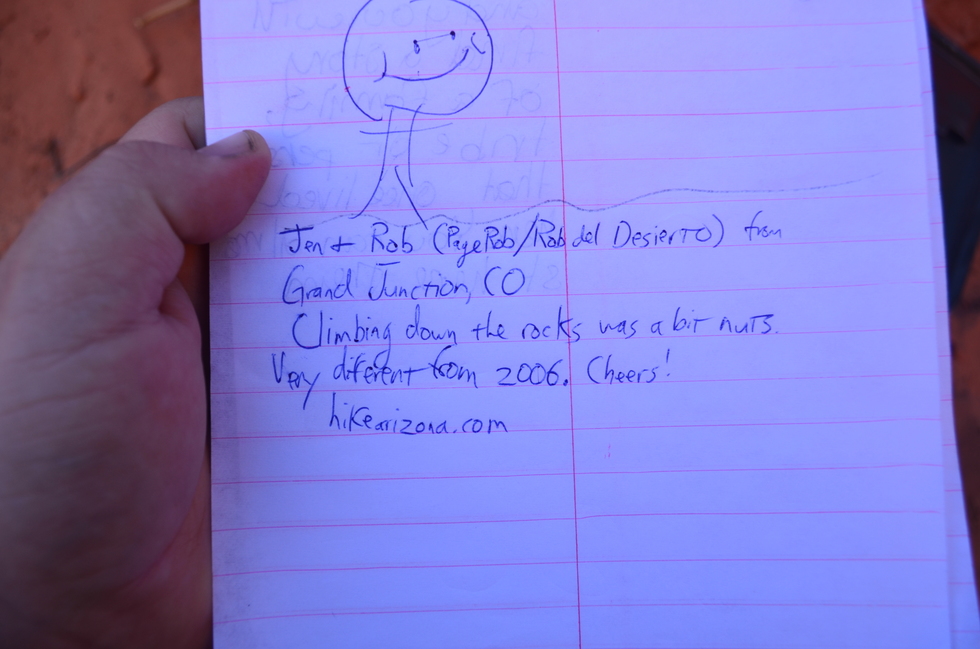 Jen + Rob (PageRob/Rob del Desierto) from
Grand Junction, CO
Climbing down the rocks was a bit nuts.
Very diferent from 2006. Cheers!
hikearizona.com